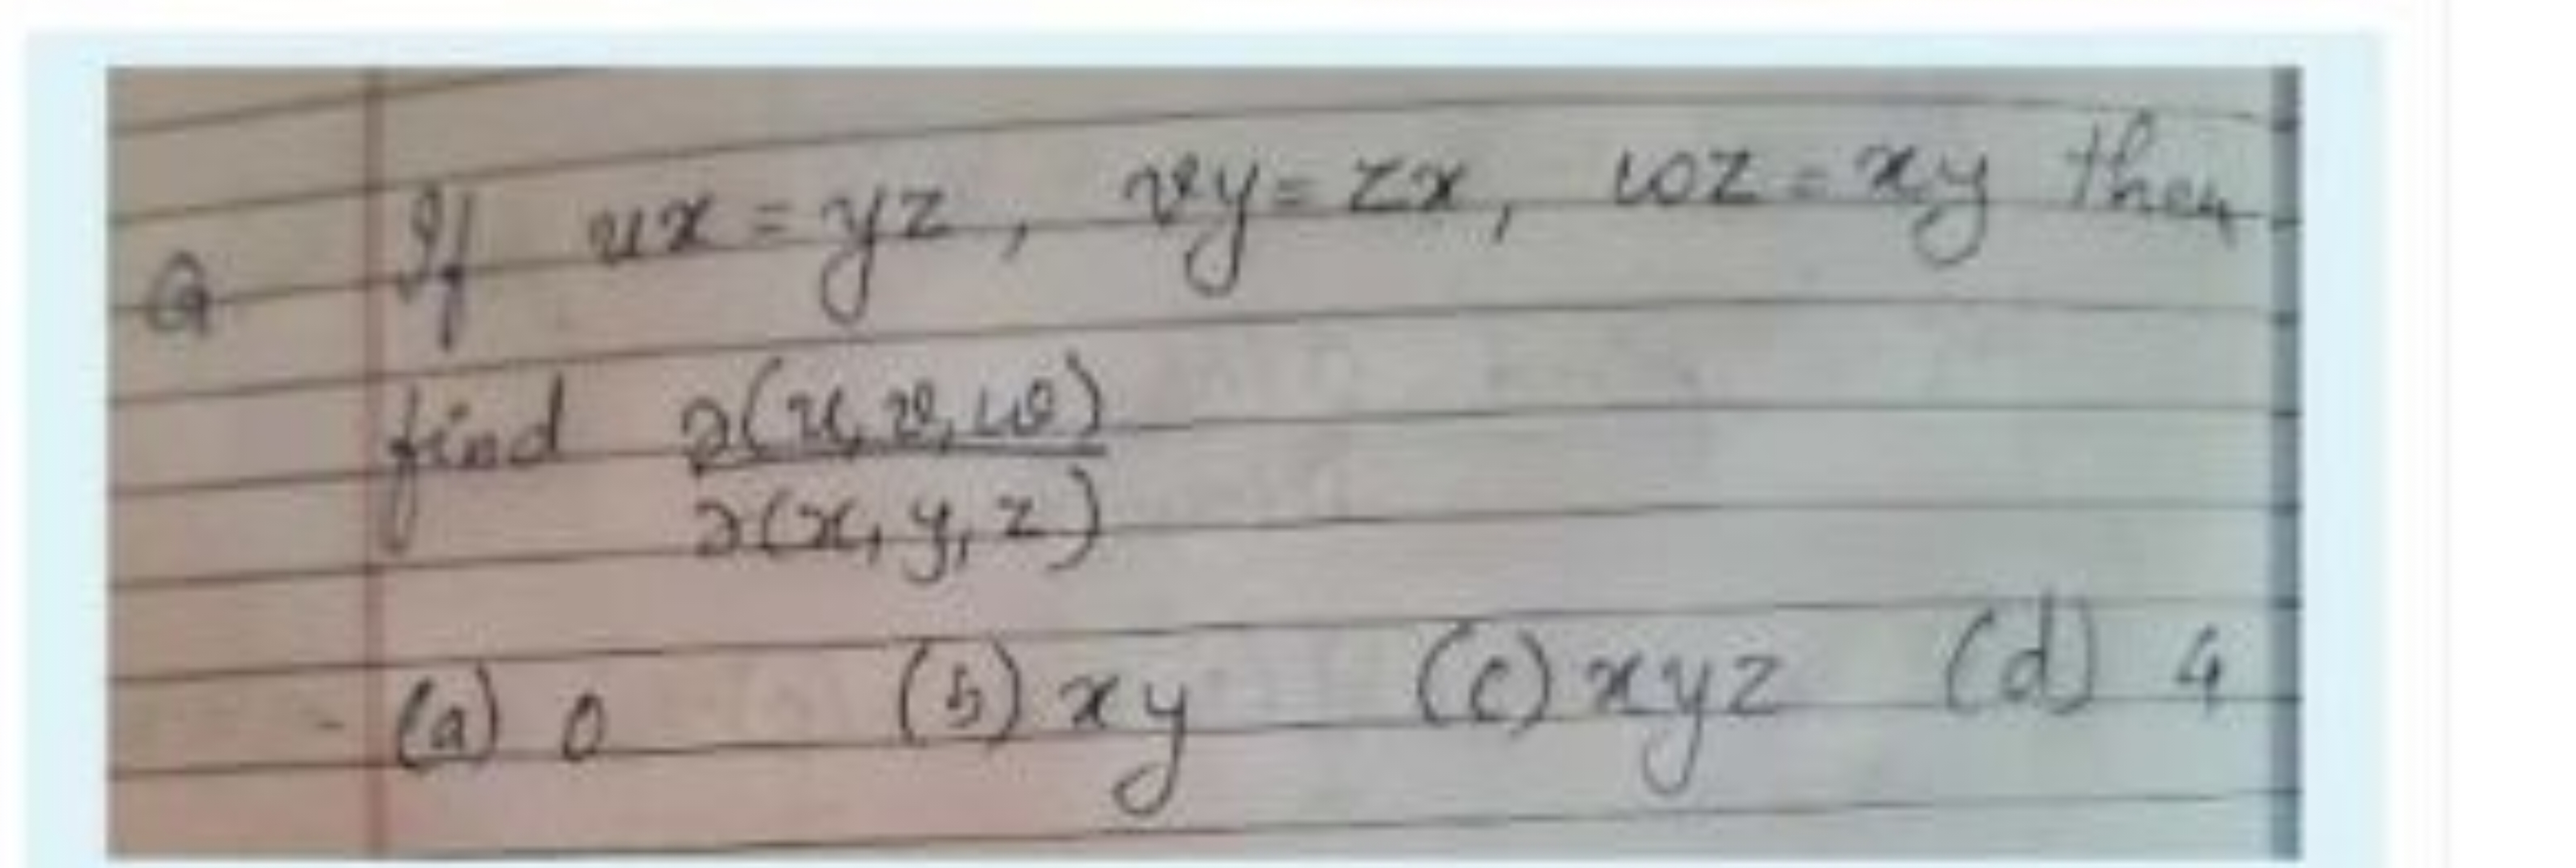 Q If ux = yz, vy = zx, wz = xy then
find ∂(u, v, w)
∂(x, y, z)
(a) 0 (b) xy (c) xyz (d) 4